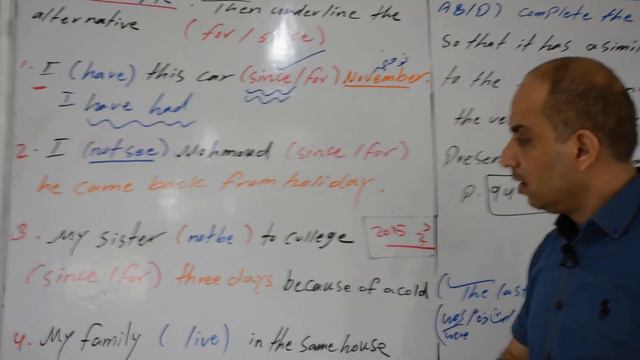 Then underline the
alternative (for / since)
1. I (have) this car (since/for) November.
I have had
2. I (not see) Mahmoud (since / for)
he came back from holiday.
3. My sister (not be) to college
2015 3/2
(since / for) three days because of a cold
4. My family (live) in the same house
AB/D) complete the
so that it has a simil
to the
the ve
Presen
P. 94
(The last